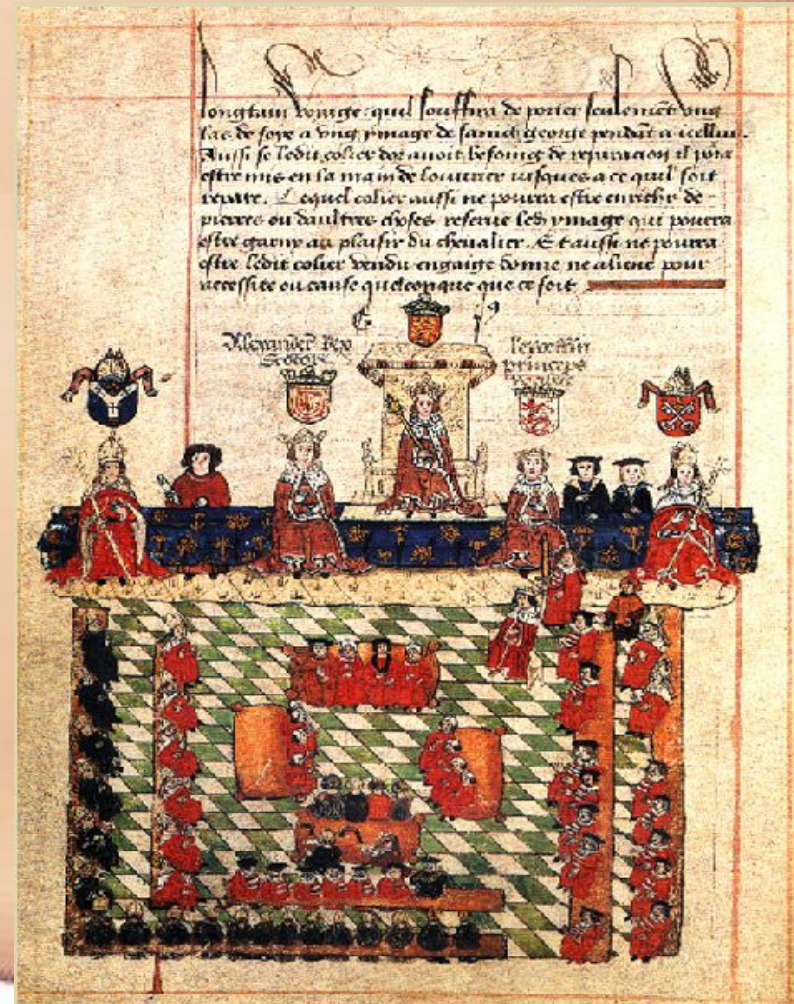 longtain voyage quil souffira de porter seulement vng
las de soye a vng ymage de sainct george pendāt a icelluy.
Aussi se ledit colier dor auoit besoing de reparacion il pora
estre mis en la main de louurier iusques a ce quil soit
repare. Lequel colier aussi ne pourra estre enrichy de
pierres ou daultres choses reserue led ymage qui pourra
estre garny au plaisir du cheualier. Et aussi ne pourra
estre ledit colier vendu engaige donne ne aliene pour
necessite ou cause quelconque que ce soit
Alexander Rex
Scotorū
princeps